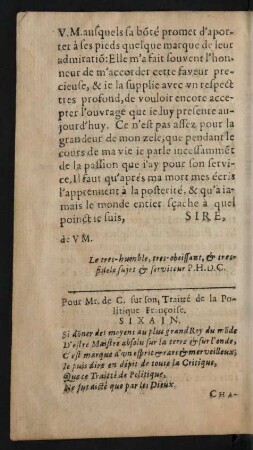 V.M. ausquels sa bõté promet d'apor-
ter à ses pieds quelque marque de leur
admiratiõ: Elle m'a fait souvent l'hon-
neur de m'accorder cette faveur pre-
cieuse, & ie la supplie avec vn respect
tres profond, de vouloir encore acce-
pter l'ouvrage que ie luy presente au-
jourd'huy. Ce n'est pas assez pour la
grandeur de mon zele, que pendant le
cours de ma vie ie parle incessammẽt
de la passion que i'ay pour son servi-
ce, il faut qu'aprés ma mort mes écris
l'apprennent à la posterité, & qu'à ia-
mais le monde entier sçache à quel
poinct ie suis, SIRE,
de V M.
Le tres-humble, tres-obeissant, & tres-
fidele sujet & serviteur P. H. D. C.
Pour Mr. de C. sur son, Traitté de la Po-
litique Françoise.
SIXAIN.
Si dõner des moyens au plus grand Rey du mõde
D'estre Maistre absolu sur la terre & sur l'onde,
C'est marque d'vn esprit & rare & merveilleux;
Ie puis dire en dépit de toute la Critique,
Que ce Traitté de Politique,
Ne fut dicté que par les Dieux.
CHA-